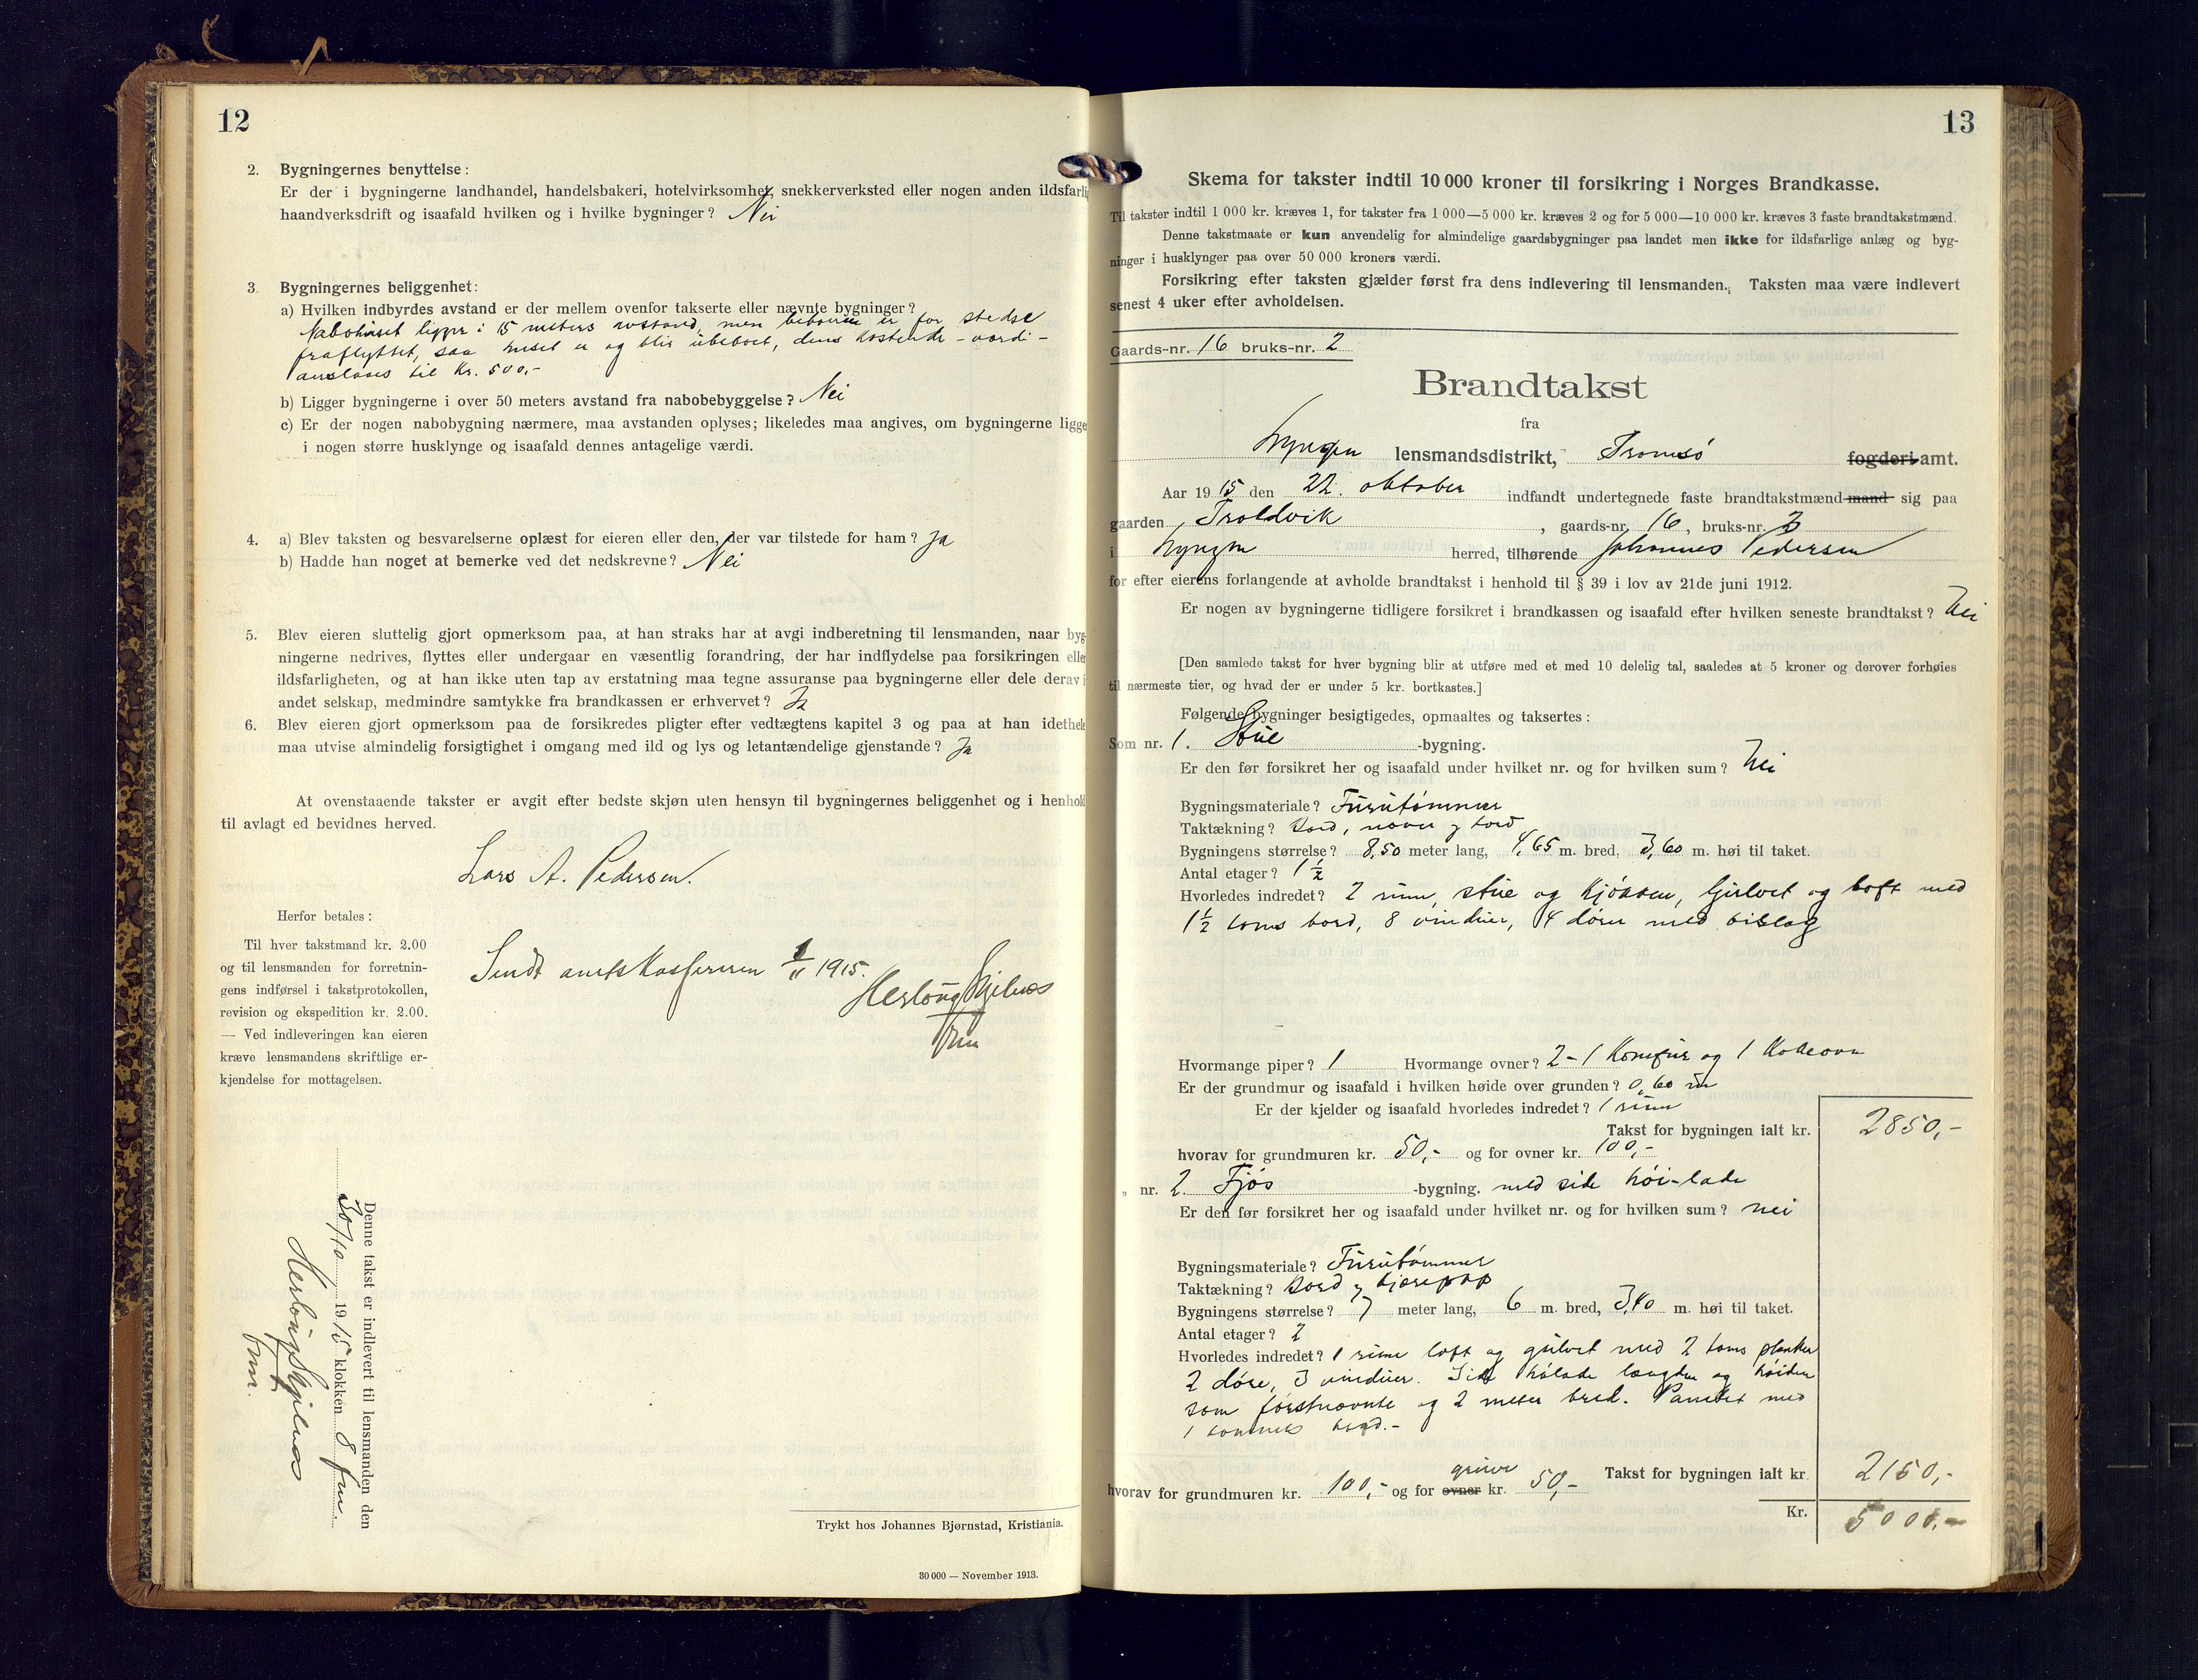 12
2. Bygningernes benyttelse:
Er der i bygningerne landhandel, handelsbakeri, hotelvirksomhet, snekkerverksted eller nogen anden ildsfarli
haandverksdrift og isaafald hvilken og i hvilke bygninger? Nei
3. Bygningernes beliggenhet:
a) Hvilken indbyrdes avstand er der mellem ovenfor takserte eller nævnte bygninger?
Nabohuset ligger i 15 meters avstand, men beboerne er for stedse
fraflyttet, saa huset er og blir ubeboet, dens kostende - værdi -
ansløaes til Kr. 500,-
b) Ligger bygningerne i over 50 meters avstand fra nabobebyggelse? Nei
c) Er der nogen nabobygning nærmere, maa avstanden oplyses; likeledes maa angives, om bygningerne ligge
i nogen større husklynge og isaafald dennes antagelige værdi.
4. a) Blev taksten og besvarelserne oplæst for eieren eller den, der var tilstede for ham? Ja
b) Hadde han noget at bemerke ved det nedskrevne? Nei
5. Blev eieren sluttelig gjort opmerksom paa, at han straks har at avgi indberetning til lensmanden, naar byg
ningerne nedrives, flyttes eller undergaar en væsentlig forandring, der har indflydelse paa forsikringen elle
ildsfarligheten, og at han ikke uten tap av erstatning maa tegne assuranse paa bygningerne eller dele derav i
andet selskap, medmindre samtykke fra brandkassen er erhvervet? Ja
6. Blev eieren gjort opmerksom paa de forsikredes pligter efter vedtægtens kapitel 3 og paa at han idethele
maa utvise almindelig forsigtighet i omgang med ild og lys og letantændelige gjenstande? Ja
At ovenstaaende takster er avgit efter bedste skjøn uten hensyn til bygningernes beliggenhet og i henhold
til avlagt ed bevidnes herved.
Lars A. Pedersen.
Herfor betales:
Til hver takstmand kr. 2.00
og til lensmanden for forretnin-
gens indførsel i takstprotokollen,
revision og ekspedition kr. 2.00.
— Ved indleveringen kan eieren
kræve lensmandens skriftlige er-
kjendelse for mottagelsen.
Sendt amtskassereren 1/11 1915.
Herlaug
Denne takst er indlevert til lensmanden den
30/10 1915 klokken 8 fm.
Herlaug
Trykt hos Johannes Bjørnstad, Kristiania.
30 000 — November 1913.
13
Skema for takster indtil 10 000 kroner til forsikring i Norges Brandkasse.
Til takster indtil 1 000 kr. kræves 1, for takster fra 1 000—5 000 kr. kræves 2 og for 5 000—10 000 kr. kræves 3 faste brandtakstmænd.
Denne takstmaate er kun anvendelig for almindelige gaardsbygninger paa landet men ikke for ildsfarlige anlæg og byg-
ninger i husklynger paa over 50 000 kroners værdi.
Forsikring efter taksten gjælder først fra dens indlevering til lensmanden. Taksten maa være indlevert
senest 4 uker efter avholdelsen.
Gaards-nr. 16 bruks-nr. 2
Brandtakst
fra
Lyngen lensmandsdistrikt, Tromsø fogderi amt.
Aar 1915 den 22. oktober indfandt undertegnede faste brandtakstmænd mand sig paa
gaarden Troldvik, gaards-nr. 16, bruks-nr. 2
i Lyngen herred, tilhørende Johannes Pedersen
for efter eierens forlangende at avholde brandtakst i henhold til § 39 i lov av 21de juni 1912.
Er nogen av bygningerne tidligere forsikret i brandkassen og isaafald efter hvilken seneste brandtakst? Nei
[Den samlede takst for hver bygning blir at utføre med et med 10 delelig tal, saaledes at 5 kroner og derover forhøies
til nærmeste tier, og hvad der er under 5 kr. bortkastes.]
Følgende bygninger besigtigedes, opmaaltes og taksertes:
Som nr. 1. Stue -bygning.
Er den før forsikret her og isaafald under hvilket nr. og for hvilken sum? Nei
Bygningsmateriale? Furutømmer
Taktækning? Bord, never og torv
Bygningens størrelse? 8,50 meter lang, 4,65 m. bred, 3,60 m. høi til taket.
Antal etager? 1 1/2
Hvorledes indredet? 2 rum, stue og kjøkken, gulvet og loft med
1 1/2 toms bord, 8 vinduer, 4 døre med bislag
Hvormange piper? 1 Hvormange ovner? 2 - 1 Komfur og 1 Kokeovn
Er der grundmur og isaafald i hvilken høide over grunden? 0,60 m
Er der kjelder og isaafald hvorledes indredet? 1 rum
Takst for bygningen ialt kr. 2850,-
hvorav for grundmuren kr. 50,- og for ovner kr. 100,-
„ nr. 2. Fjøs -bygning. med side høi-lade
Er den før forsikret her og isaafald under hvilket nr. og for hvilken sum? nei
Bygningsmateriale? Furutømmer
Taktækning? Bord og tjærepap
Bygningens størrelse? 7 meter lang, 6 m. bred, 3,40 m. høi til taket.
Antal etager? 2
Hvorledes indredet? 1 rum loft og gulvet med 2 toms planker
2 døre, 3 vinduer. Side hølade længden og høiden
som førstnævnte og 2 meter bred. Panelet med
1 tommers bord.-
Takst for bygningen ialt kr. 2150,-
hvorav for grundmuren kr. 100,- og for ovner gruve kr. 50,-
Kr. 5000,-